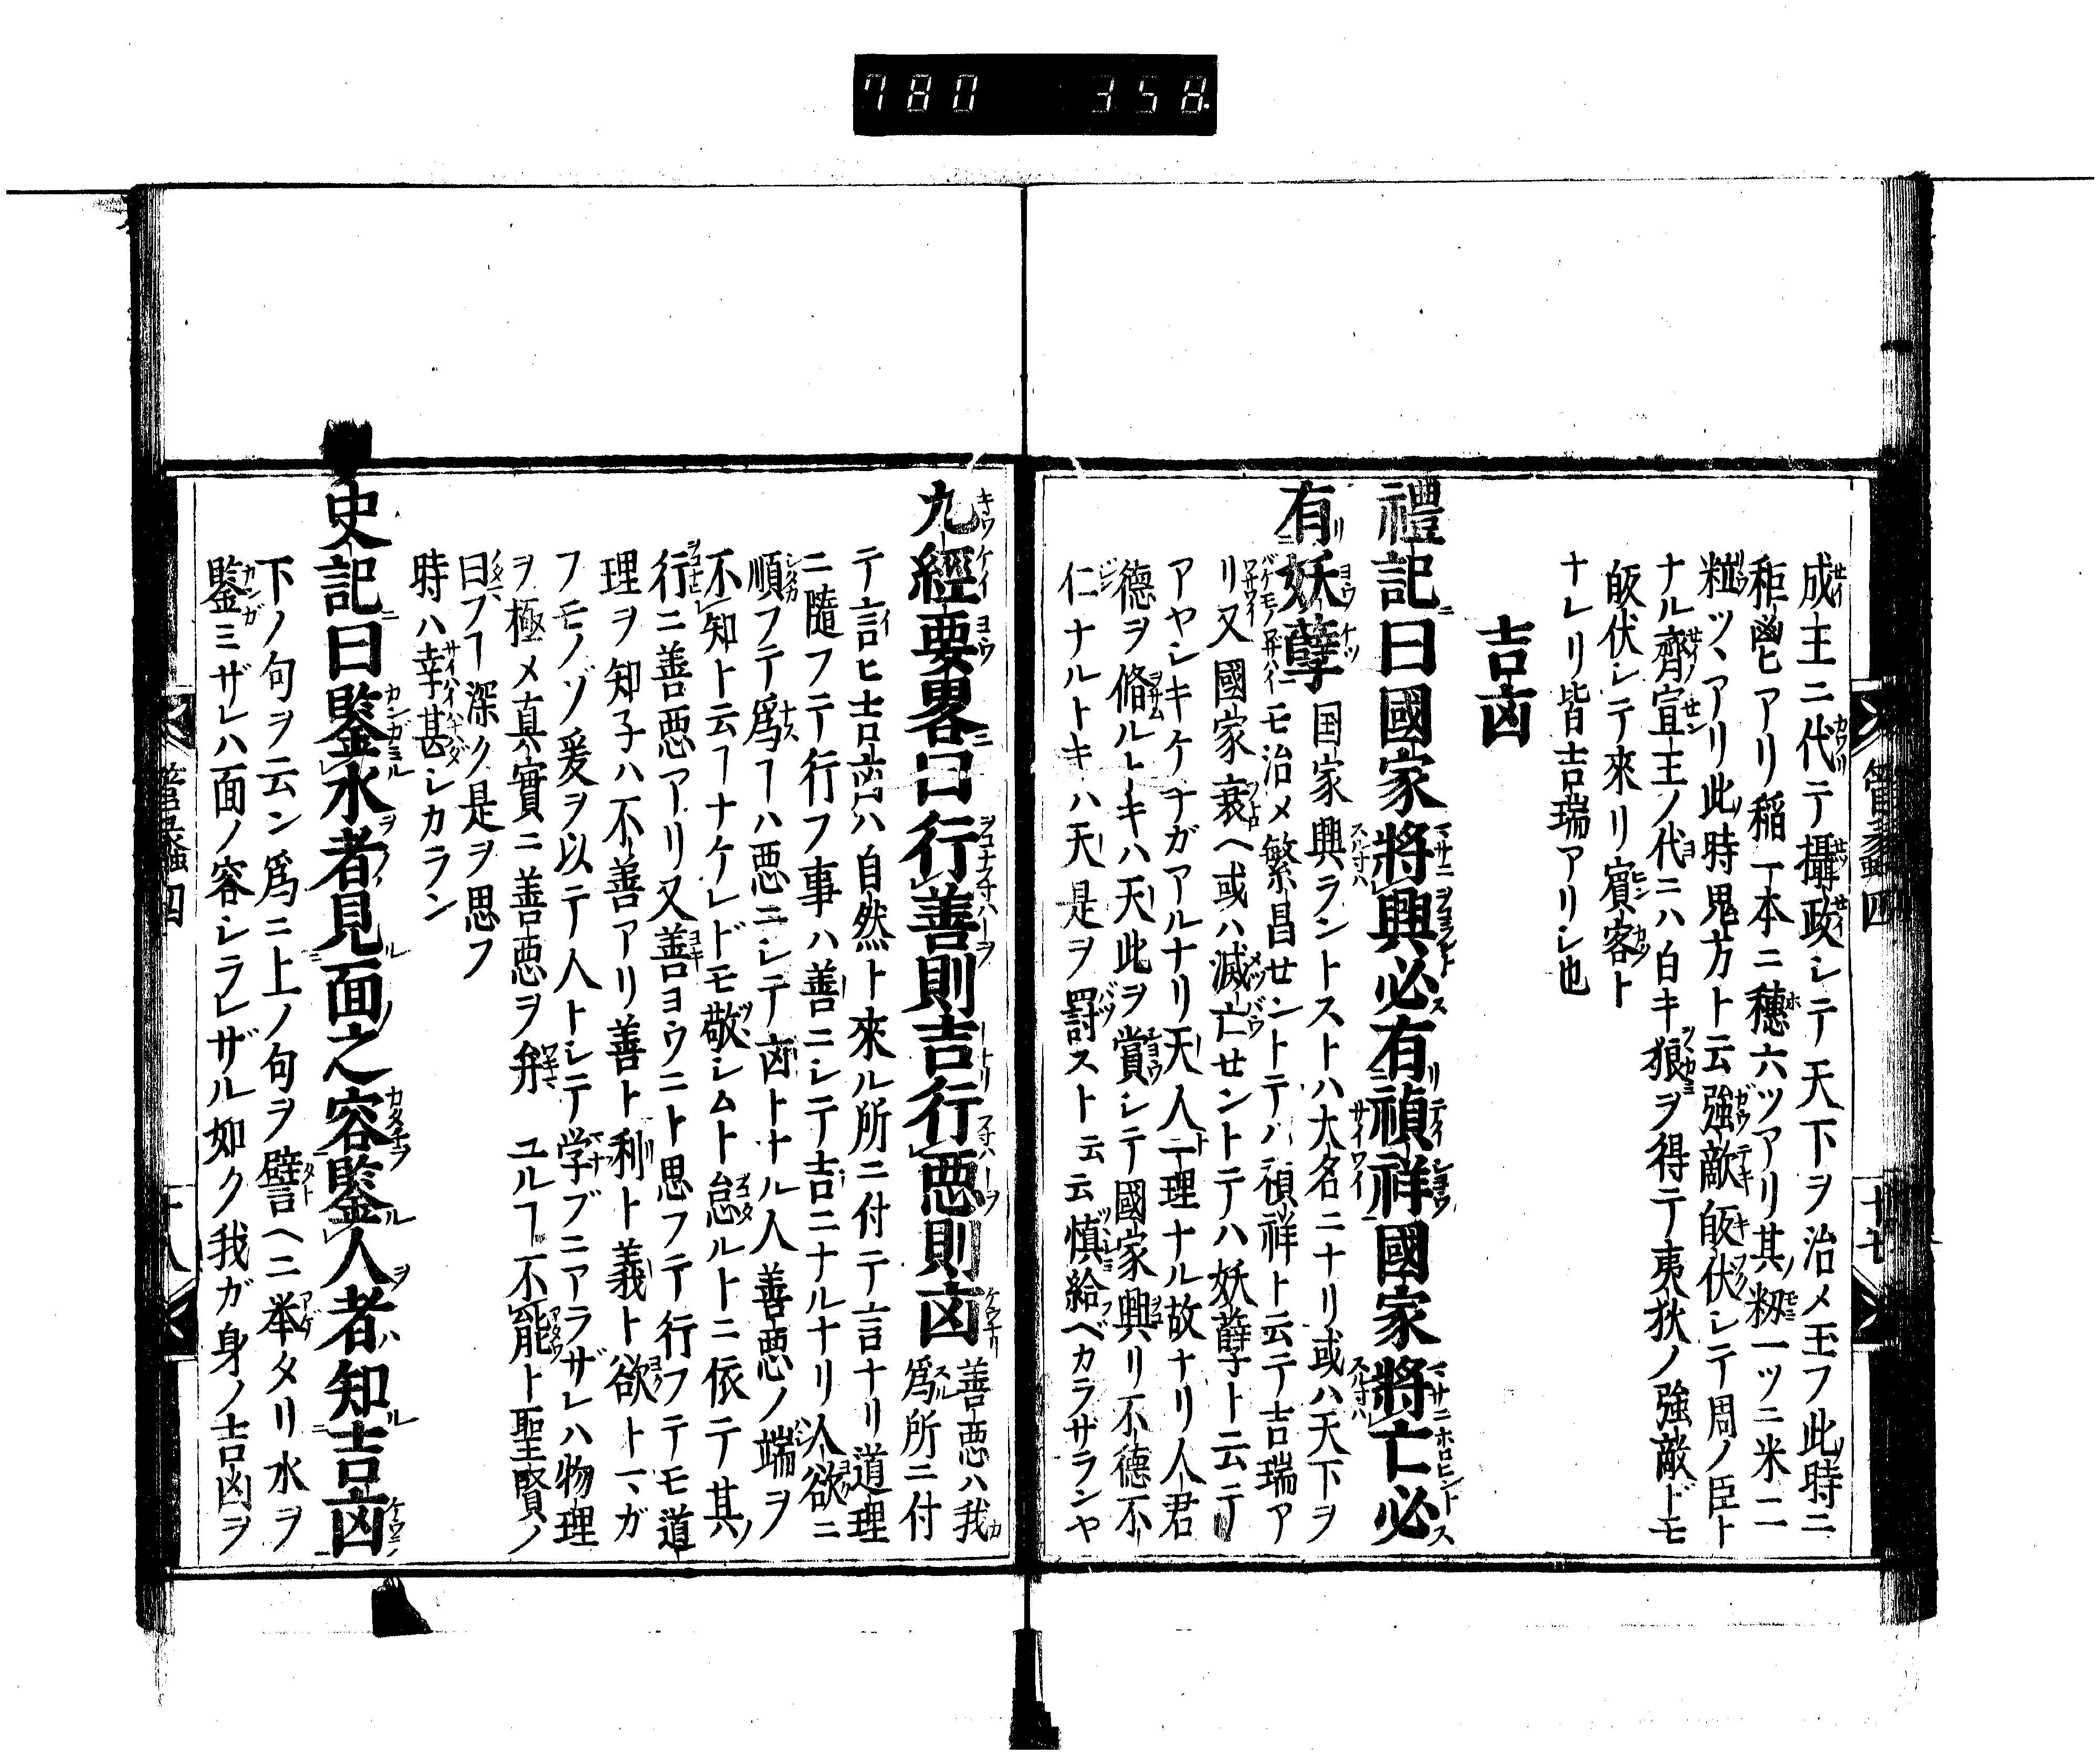 780 358
成王ニ代テ攝政シテ天下ヲ治メ玉フ此時ニ
秬鬯アリ稲一本ニ穗六ツアリ其籾一ツニ米二
粒ツヽアリ此時鬼方ト云強敵皈伏シテ周ノ臣ト
ナル齊宣王ノ代ニハ白キ狼ヲ得テ夷狄ノ強敵ドモ
皈伏シテ來リ賓客ト
ナレリ皆吉瑞アリシ也
吉凶
禮記曰國家將興必有禎祥國家將亡必
有妖孽国家興ラントストハ大名ニナリ或ハ天下ヲ
モ治メ繁昌せントテハ禎祥ト云テ吉瑞ア
リ又國家衰ヘ或ハ滅亡せントテハ妖孽ト云テ
アヤシキケチガアルナリ天人一理ナル故ナリ人君
德ヲ脩ルトキハ天此ヲ賞シテ國家興リ不德不
仁ナルトキハ天是ヲ罸スト云云慎給ベカラザランヤ
管蠡四
十七
九經要畧曰行善則吉行悪則凶善悪ハ我爲所ニ付
テ言ヒ吉凶ハ自然ト來ル所ニ付テ言ナリ道理
ニ隨フテ行フ事ハ善ニシテ吉ニナルナリ人欲ニ
順フテ爲ヿハ悪ニシテ凶トナル人善悪ノ端ヲ
不知ト云ヿナケレドモ敬シムト怠ルトニ依テ其
行ニ善悪アリ又善ヨウニト思フテ行フテモ道
理ヲ知子ハ不善アリ善ト利ト義ト欲トマガ
フモノゾ爰ヲ以テ人トシテ学ブニアラザレハ物理
ヲ極メ真實ニ善悪ヲ弁ユルヿ不能ト聖賢ノ
曰フヿ深ク是ヲ思フ
時ハ幸甚シカラン
史記曰鑒水者見面之容鑒人者知吉凶
下ノ句ヲ云ン爲ニ上ノ句ヲ譬ヘニ挙タリ水ヲ
鑒ミザレハ面ノ容シラレザル如ク我ガ身ノ吉凶ヲ
管蠡四
十八